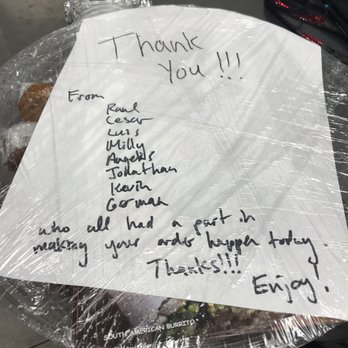 Thank
You!!!
From
Raul
Cesar
Luis
Milly
Angeles
Jonathan
Kevin
German
who all had a part in
making your order happen today.
Thanks!!!
Enjoy!
SOUTH AMERICAN BURRITO